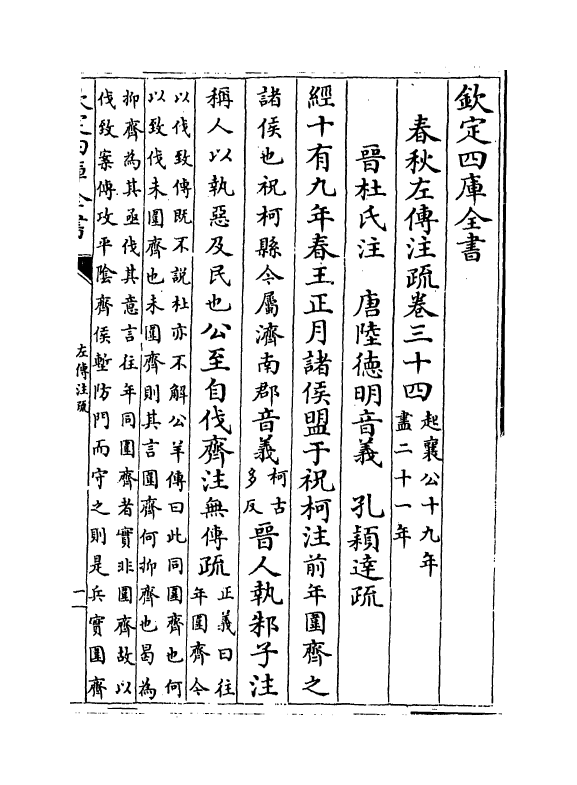 欽定四庫全書
春秋左傳注疏卷三十四起襄公十九年
盡二十一年
晉杜氏注　唐陸德明音義　孔穎達疏
經十有九年春王正月諸侯盟于祝柯注前年圍齊之
諸侯也祝柯縣今屬濟南郡音義柯古
多反晉人執邾子注
稱人以執惡及民也公至自伐齊注無傳疏正義曰往
年圍齊今
以伐致傳既不說杜亦不解公羊傳曰此同圍齊也何
以致伐未圍齊也未圍齊則其言圍齊何抑齊也曷為
抑齊為其亟伐其意言往年同圍齊者實非圍齊故以
伐致案傳攻平陰齊侯塹防門而守之則是兵實圍齊
欽定四庫全書
左傳注疏
一